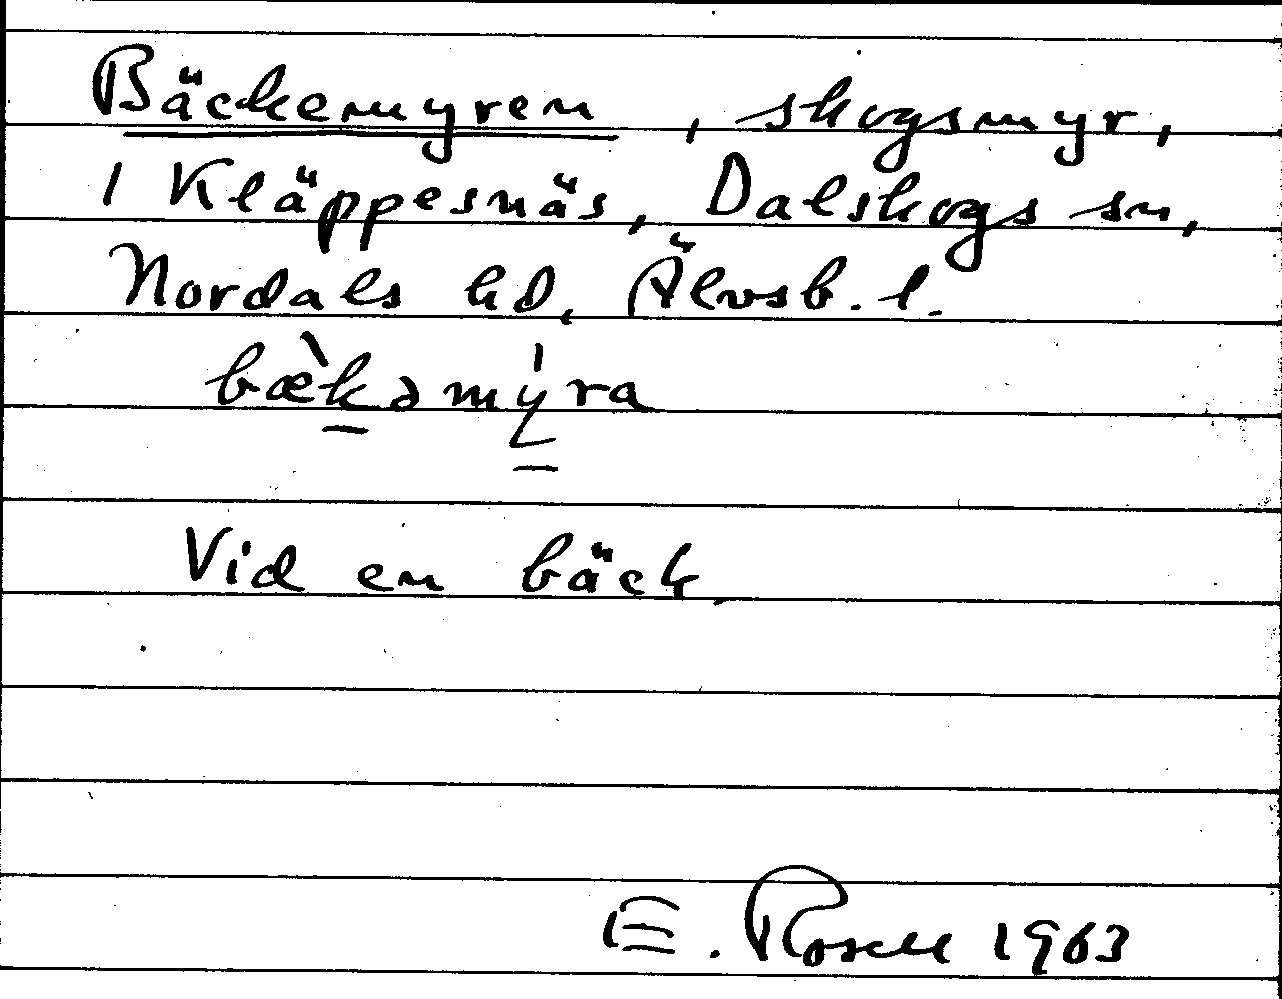 Bäckemyren, skogsmyr,
i Kläppesnäs, Dalskogs sn,
Nordals hd, Älvsb. l.
bæ̀kəmýra
Vid en bäck.
E. Rosell 1963